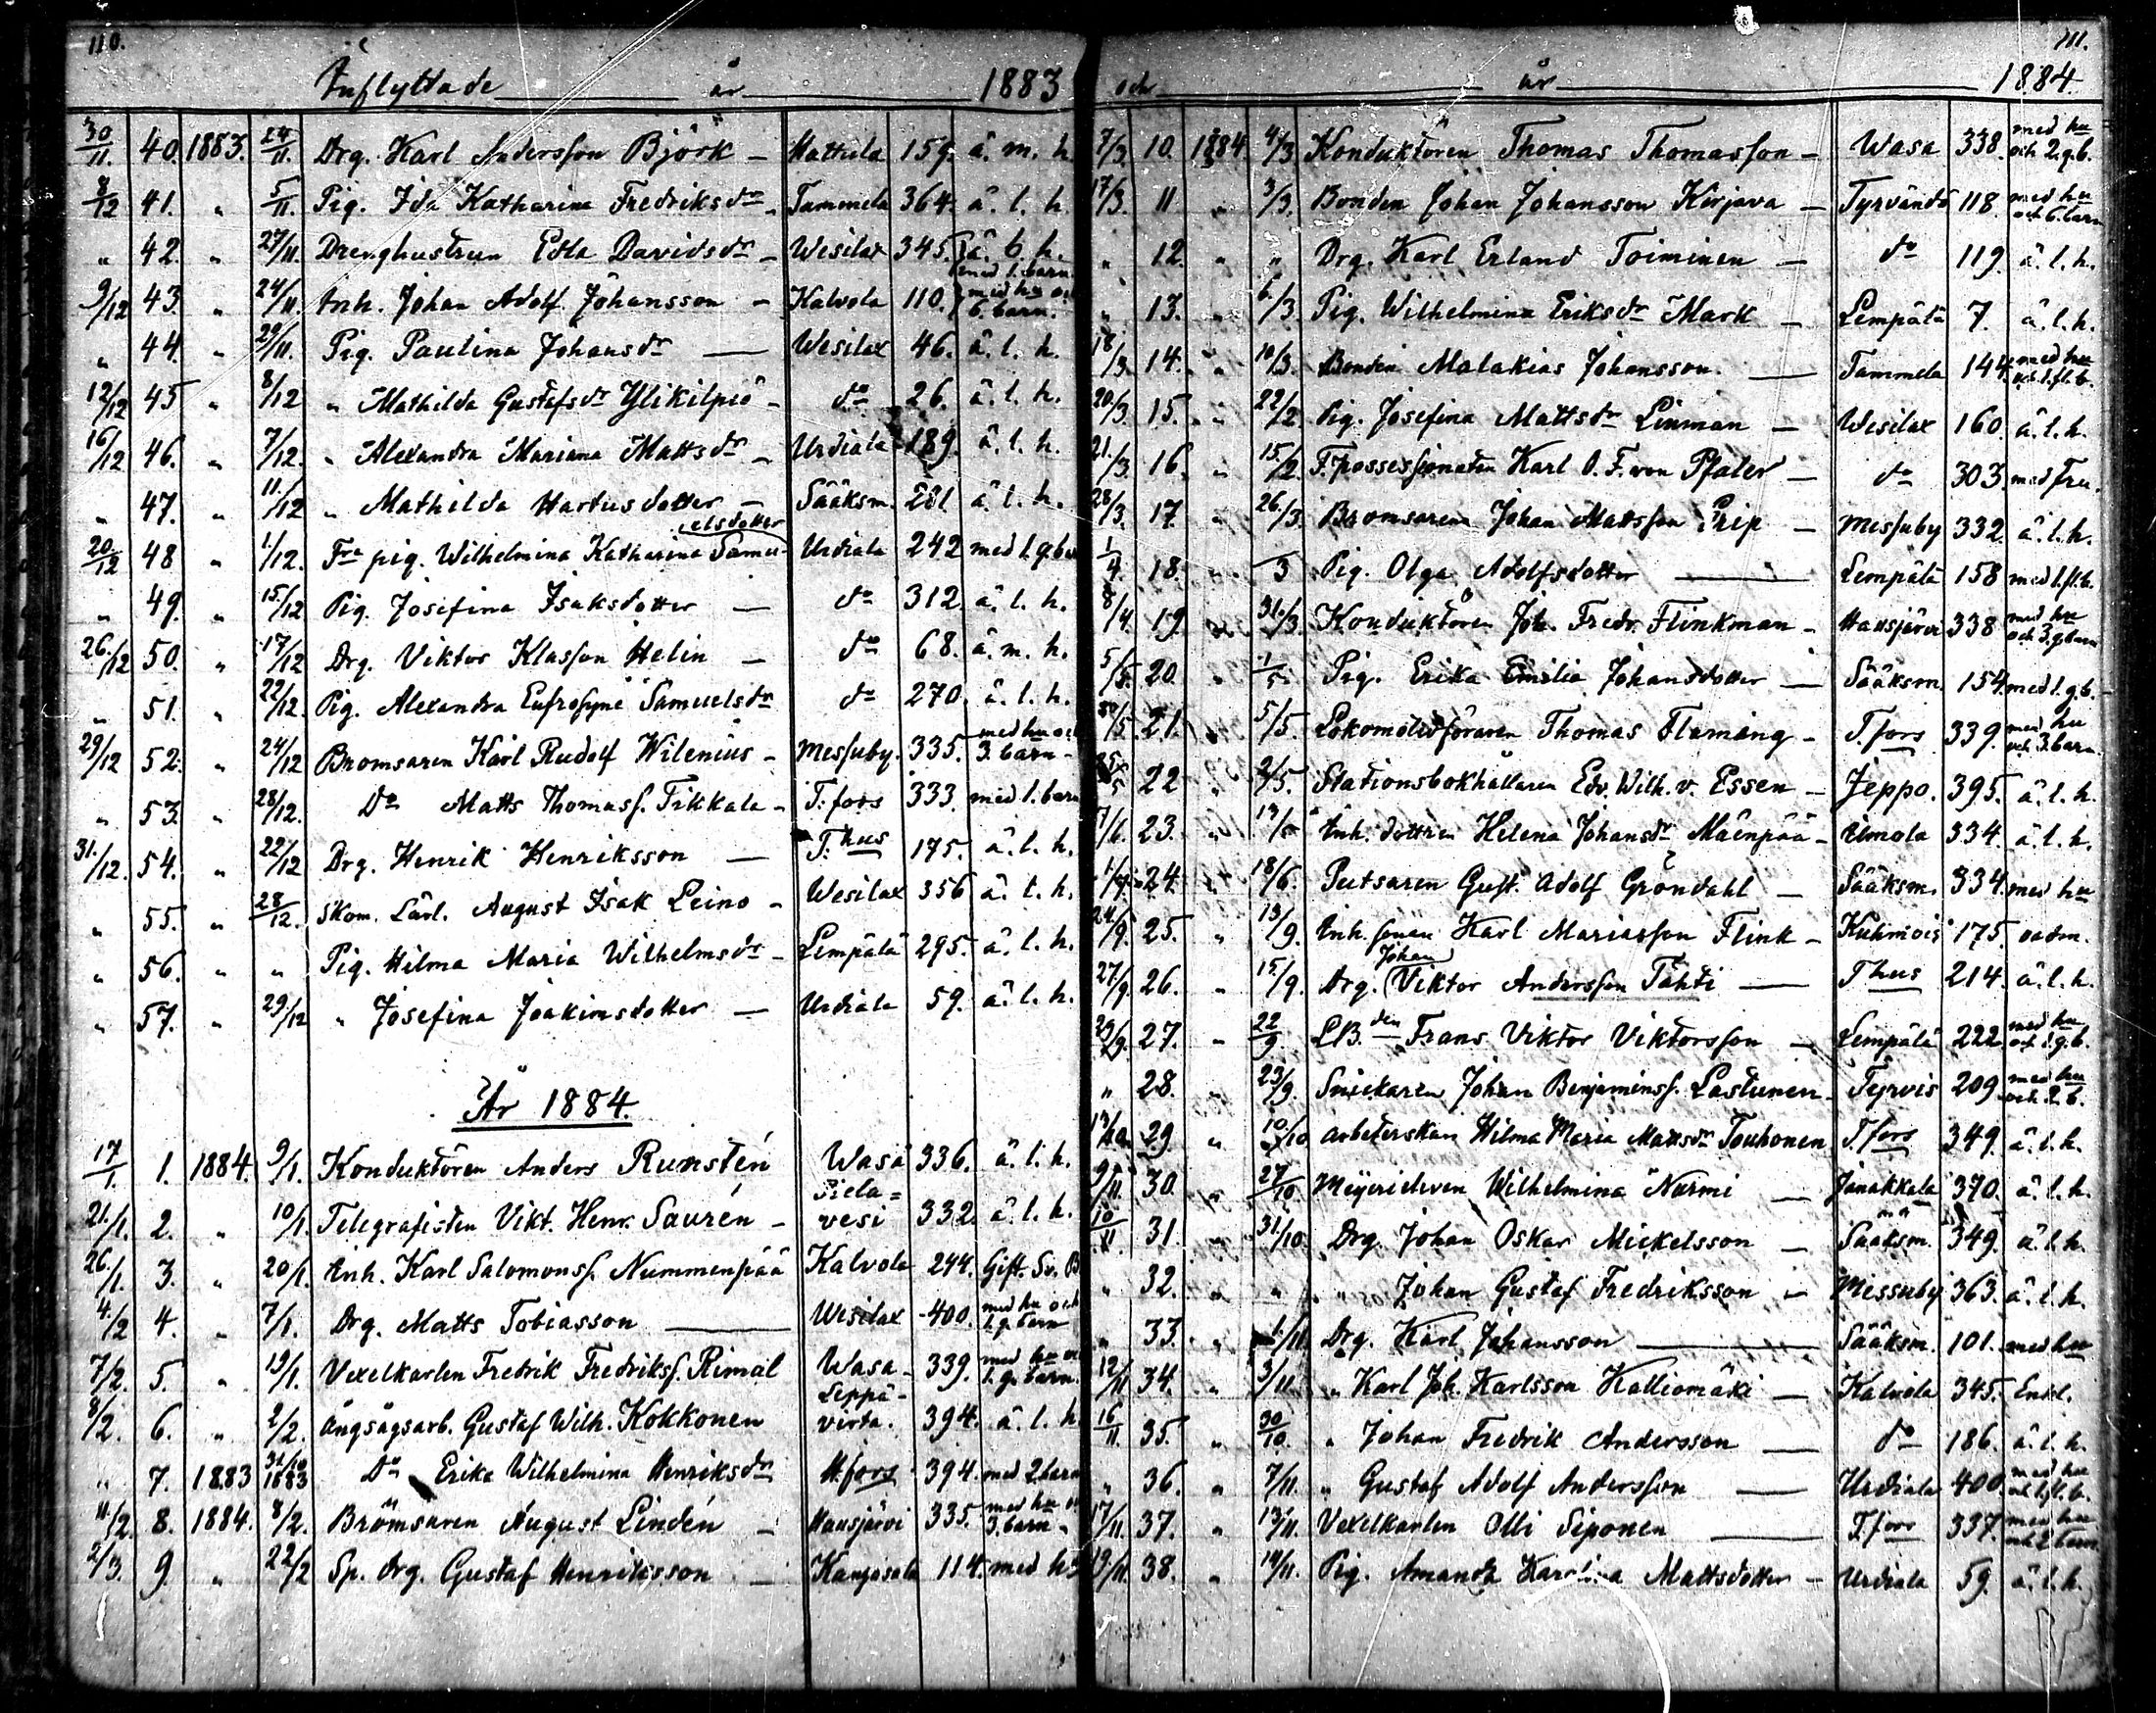 110.
Inflyttade år 1883
30/11. 40. 1883. 24/11. Drg. Karl Andersson Björk - Mattula 159. ä. m. h.
8/12 41. " 5/11. Pig. Ida Katharina Fredriksdr - Tammela 364 ä. l. h.
" 42. " 27/11. Drenghustrun Edla Davidsdr - Wesilax 345. ä. b. h. med 1. barn.
9/12 43. " 24/11. Inh. Johan Adolf Johansson - Kalvola 110. med hu och 6. barn.
" 44. " 29/11. Pig. Paulina Johansdr — Wesilax 46. ä. l. h.
12/12 45 " 8/12 " Mathilda Gustafsdr Ylikilpiö - do 26. ä. l. h.
16/12 46. " 7/12. " Alexandra Mariana Mattsdr - Urdiala 189. ä. l. h.
" 47. " 11./12 " Mathilda Hartusdotter - Sääksm. 281 ä. l. h.
20/12 48 " 1/12. Fra pig. Wilhelmina Katharina Samuelsdotter Urdiala 242 med 1. g. b
" 49. " 15/12 Pig. Josefina Isaksdotter — do 312. ä. l. h.
26/12 50. " 17/12 Drg. Viktor Klasson Helin — do 68. ä. m. h.
" 51. " 22/12. Pig. Alexandra Eufrosyne Samuelsdr do 270. ä. l. h.
29/12 52. " 24/12 Bromsaren Karl Rudolf Wilenius - Messuby. 335. med hu och 3. barn -
" 53. " 28/12. Do Matts Thomass. Tikkala - T:fors 333. med 1. barn
31./12. 54. " 22/12 Drg. Henrik Henriksson — T:hus 175. ä. l. h.
" 55. " 28/12. Skom. Lärl. August Isak Leino - Wesilax 356 ä. l. h.
" 56. " " Pig. Hilma Maria Wilhelmsdr - Lempälä 295. ä. l. h.
" 57. " 29/12 " Josefina Joakimsdotter — Urdiala 59. ä. l. h.
År 1884.
17/1. 1. 1884. 9/1. Konduktören Anders Runstén Wasa 336. ä. l. h.
21./1. 2. " 10/1. Telegrafisten Vikt. Henr. Saurén - Pielavesi 332. ä. l. h.
26./1. 3. " 20/1. Inh. Karl Salomonss. Nummenpää Kalvola 244. Gift. Sv. B
4./2 4. " 7/1. Drg. Matts Tobiasson — Wesilax 400. med hu och 1. g. barn
7/2. 5. " 19/1. Vexelkarlen Fredrik Fredrikss. Rimal Wasa - 339. med hu och 1. g. barn.
8/2. 6. " 2/2. Ångsågsarb. Gustaf Wilh. Kokkonen Leppävirta. 394. ä. l. h
" 7. 1883 31/10 1883 Do Erika Wilhelmina Henriksdr H:fors 394. med 2 barn
11/2. 8. 1884. 8/2. Brömsaren August Lindén - Hausjärvi 335. med hu och 3. barn -
2/3. 9. " 22/2 Sp. drg. Gustaf Henriksson — Kangasala 114. med hu
111.
och år 1884
7/3. 10. 1884 4/3 Konduktören Thomas Thomasson - Wasa 338. med hu och 2. g. b.
17/3. 11 " 3/3. Bonden Johan Johansson Kirjava - Tyrvändö 118. med hu och 6. barn
" 12. " " Drg. Karl Erland Toiminen — do 119. ä. l. h.
" 13. " 6/3 Pig. Wilhelmina Eriksdr Mark — Lempälä 7. ä. l. h.
18/3 14. " 10/3. Bonden Malakias Johansson. — Tammela 144. med hu och 1. fl. b.
20/3 15. " 22/2 Pig. Josefina Mattsdr Linman — Wesilax 160. ä. l. h.
21./3. 16. " 15/2 F. possessionaten Karl O. F. von Pfaler — do 303. med fru.
28/3. 17. " 26./3. Bromsaren Johan Mattsson Grip — Messuby 332. ä. l. h.
1/4. 18. " 3 Pig. Olga Adolfsdotter — Lempälä 158 med 1. fl. b.
8/4. 19. 31./3 Konduktören Joh. Fredr. Flinkman - Hausjärvi 338 med hu och 3. g. barn
5/5. 20. 1/5 Pig. Erika Emilia Johansdotter — Sääksm. 154. med 1. g. b.
/5. 21. 5/5. Lokomotivföraren Thomas Fleming - T.fors 339. med hu och 3. barn.
/5 22 2/5. Stationsbokhållaren Edv. Wilh. v. Essen - Jeppo. 395. ä. l. h.
7/6. 23. " Inh. dottren Helena Johansdr Mäenpää - Ilmola 334. ä. l. h.
24. 18/6. Putsaren Gust. Adolf Gröndahl — Sääksm. 334. med hu
24/9. 25. " 13/9. Inh. sonen Karl Mariasson Flink - Kuhmois 175.
27/9. 26. " 15/9. Drg. Johan Viktor Andersson Tähti — Thus 214. ä. l. h.
29/9. 27. " 22/9. LB.den Frans Viktor Viktorsson — Lempälä 222 med hu och 1. g. b.
" 28. " 23/9. Snickaren Johan Benjamins. Lastunen - Tyrvis 209 med hu och 2. b.
29 " 10/10 Arbeterskan Hilma Maria Mattsdr Touhonen T.fors 349. ä. l. h.
9/11. 30. " 27/10 Mejerieleven Wilhelmina Nurmi — Janakkala 370. ä. l. h.
10/11 31. " 31/10. Drg. Johan Oskar Mickelsson — Sääksm. 349. ä. l. h.
" 32. " " " Johan Gustaf Fredriksson — Messuby 363. ä. l. h.
" 33. " 1/11. Drg. Karl Johansson — Sääksm. 101. med hu
12/11 34. " 3/11 " Karl Joh. Karlsson Kalliomäki — Kalvola 345. Enkl.
16/11. 35. " 30/10. " Johan Fredrik Andersson — do 186. ä. l. h.
" 36. " 7/11. " Gustaf Adolf Andersson — Urdiala 400. med hu och 1. fl. b.
17/11. 37. " 13/11. Vexelkarlen Olli Siponen — T.fors 337. med hu och 2 barn
19/11. 38. " 14/11. Pig. Amanda Karolina Mattsdotter - Urdiala 59. ä. l. h.